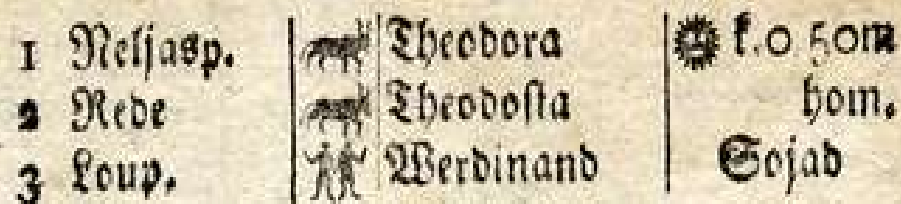 1 Neljasp. Theodora k.o hom
2 Rede Theodosia hom.
3 Loup. Werdinand Sojad